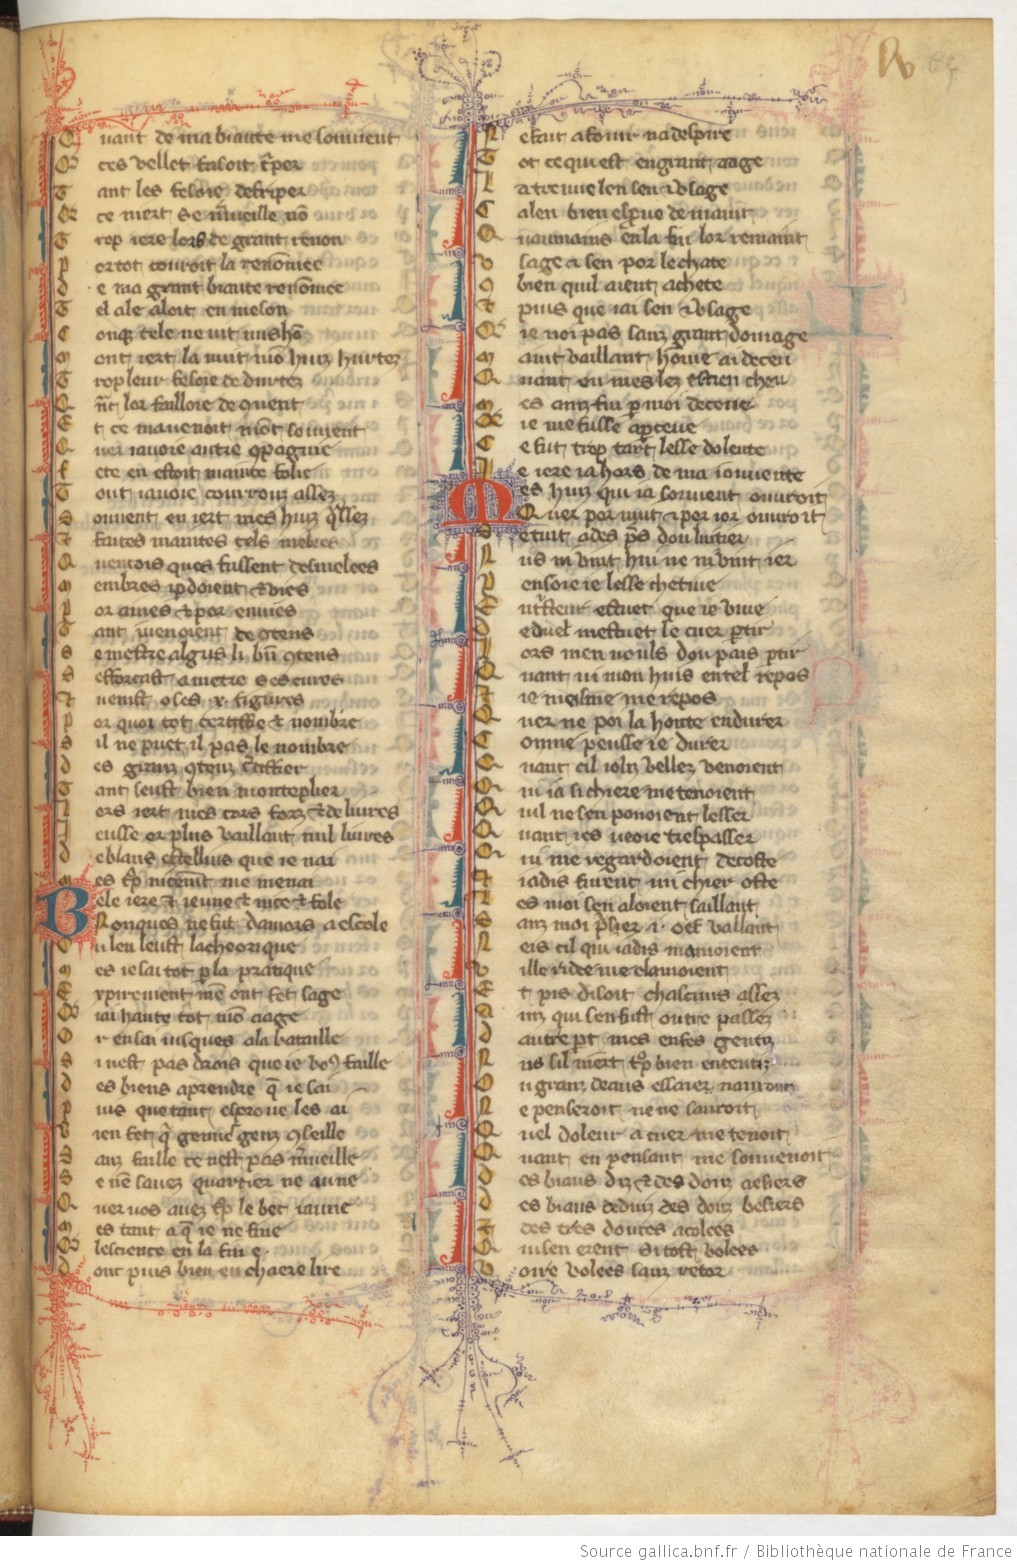 Quant de ma biaute me souuient
Ces vellet fasoit t̃per
Tant les fesoie defriper
Ce niert se m̃ueille nõ
Trop iere lors de grant renon
Portot couroit la renõmee
de ma grant biaute renõmee
Tel ale aloit en meson
Conq̃ tele ne uit nus hõ
Mont iert la nuit mõ huiz hurtez
Trop leur fesoie de durtez
Qñt lor failloie de 9uent
Et ce mauenoit mõt souuent
Car iauoie autre 9pagnie
fete en estoit mainte folie
dont iauoie courrouz assez
Souuent en iert mes huiz q̃ssez
faites maintes tels meslees
Quencois ques fussent desmelees
membres ip̱doient ⁊ vies
Por aines ⁊ por enuies
Tant iuenoient de 9tens
Se mestre algus li bñ 9tens
Sefforcast a metre ses cures
⁊ uenist o ses .x. figures
Por quoi tot certifie ⁊ nombre
Sil ne puet il pas le nombre
des granz 9tenz c̃tifier
Tant seust bien monteplier
lors iert mes cors forz ⁊ deliures
ieusse or plus vaillant mil liures
de blans estellins que ie nai
mes tp̃ nicemẽt me menai
Bele iere ⁊ ieune ⁊ nice ⁊ fole
Nonques ne fui damors a escole
Ou len leust la theorique
mes ie sai tot p̱ la pratique
Expirement mẽ ont fet sage
Que iai hante tot mõ aage
Or en sai iusques a la bataille
Si nest pas drois que ie vo9 faille
des biens aprendre q̃ ie sai
puis que tant esproue les ai
bien fet q̃ geune genz 9seille
Sanz faille ce nest pas m̃ueille
Se nẽ sauez quartier ne aune
Quer vos auez tp̃ le bec iaune
mes tant a q̃ ie ne fine
Que lescience en la fin e.
dont puis bien en chaere lire
Ne fait a fouir na despire
Tot ce qui est en grant aage
la treuue len sen ⁊ vsage
Ca len bien esp̱ue de maint
Quaumains en la fin lor remaint
vsage ⁊ sen por le chate
9bien quil aient achete
⁊ puis que iai sen ⁊ vsage
Que ie noi pas sanz grant domage
maint vaillant home ai deceu
Quant en mes lez estien cheu
mes anz fui p̱ moi deceue
Que ie me fusse ap̱ceue
Ce fut trop tart lesse dolente
Ie iere ia hors de ma iouuente
Mes huiz qui ia souuent ouuroit
Quer por nuit ⁊ por ior ouuroit
Se tint ades p̱s dou luitier
Nus ni vint hui ne ni vint ier
Pensoie ie lesse chetiue
En t̃steur estuet que ie viue
de duel mestuet le cuer p̱tir
lors men vouls dou pais p̱tir
Quant ui mon huis en tel repos
⁊ ie meisme me repos
Quer ne poi la honte endurer
Comme peusse ie durer
Quant cil iolis vellez venoient
Qui ia si chiere me tenoient
Quil ne sen pooient lesser
Quant ies veoie trespasser
Qui me regardoient decoste
⁊ iadis furent mi chier oste
les moi sen aloient saillant
Sanz moi p̱sier .i. oef vallant
Neis cil qui iadis mamoient
ville ridee me clamoient
Et pis disoit chascuns assez
ainz qui sen fust outre passez
dautre pt mes enfes gentiz
Nus sil niert tp̃ bien ententiz
Ou granz deaus essaier nauroit
Ne penseroit ne ne sauroit
Quel doleur a cuer me tenoit
Quant en pensant me souuenoit
des biaus diz ⁊ des douz aesiers
des biaus deduiz des douz besiers
⁊ des tres douces acolees
Qui sen erent si tost volees
voire volees sanz retor